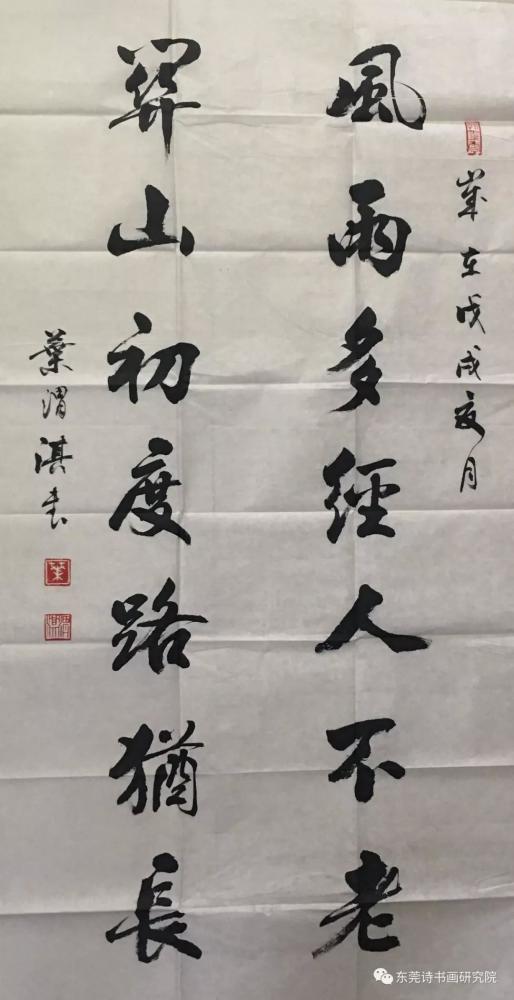 歲在戊戌夏月
風雨多經人不老
關山初度路猶長
葉渭淇書
葉
东莞诗书画研究院